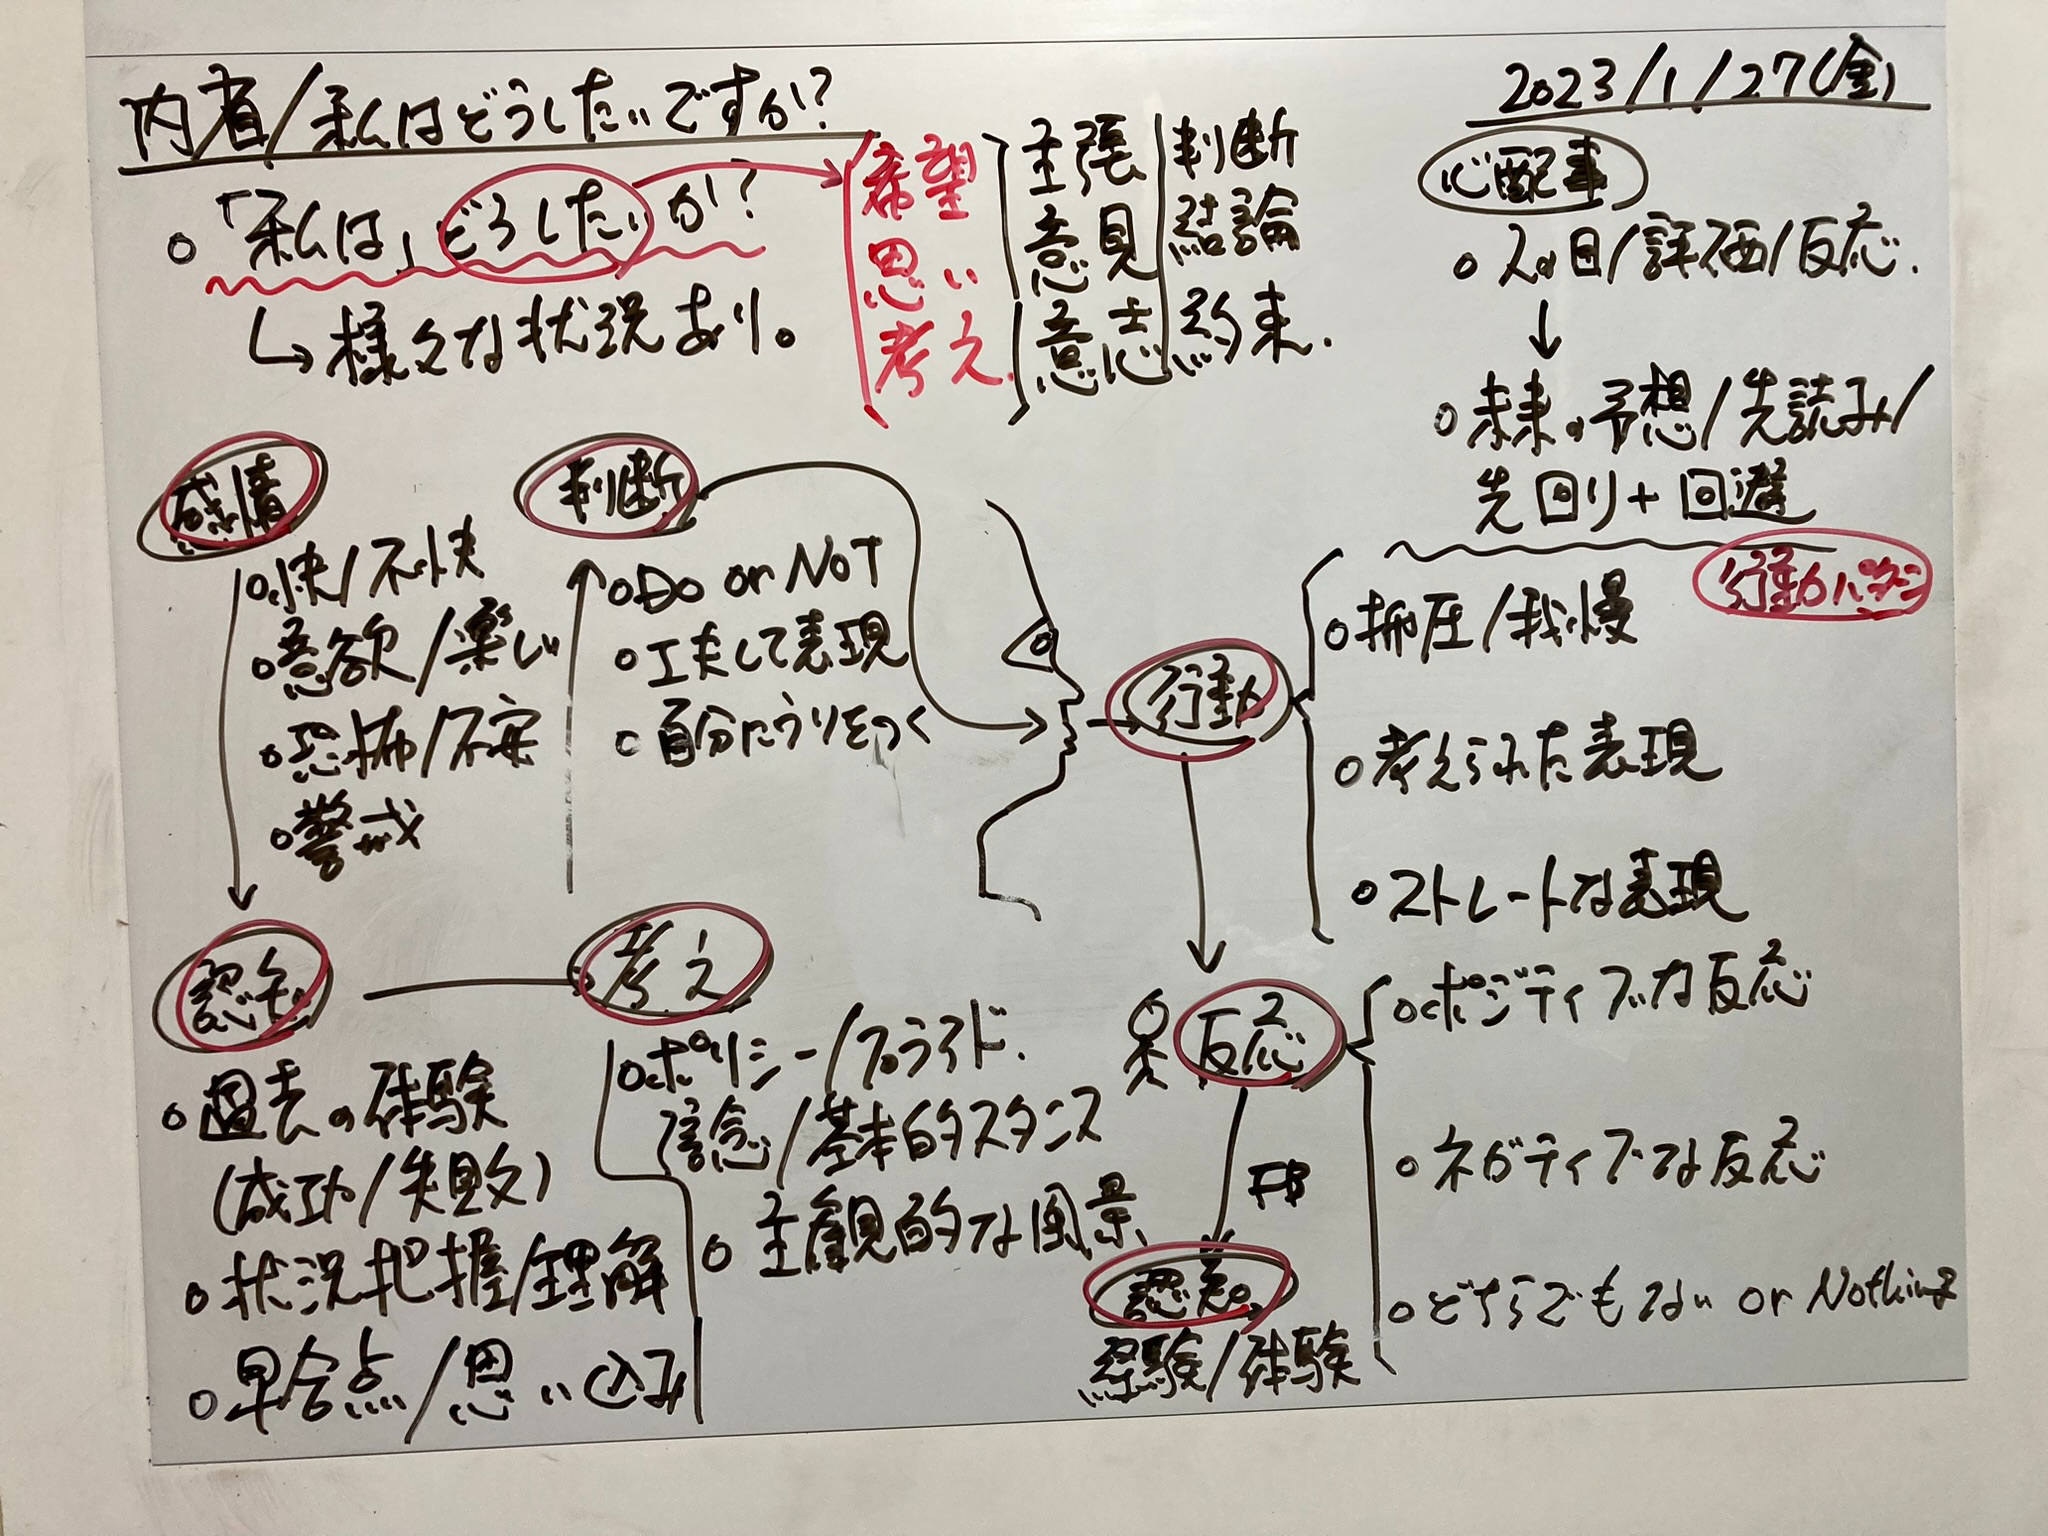 内省/私はどうしたいですか?
2023/1/27(金)
○「私は」どうしたいか?
↳様々な状況あり。
希望
思い
考え.
主張
意見
意志
判断
結論
約束.
心配事
○人の目/評価/反応.
↓
○未来の予想/先読み/
先回り+回避
行動パターン
感情
○快/不快
○意欲/楽しい
○恐怖/不安
○警戒
判断
○Do or NOT
○工夫して表現
○自分にウソをつく
行動
○抑圧/我慢
○考えられた表現
○ストレートな表現
認知
○過去の体験
(成功/失敗)
○状況把握/理解
○早合点/思い込み
考え
○ポリシー/プライド.
信念/基本的スタンス
○主観的な風景
反応
○ポジティブな反応
○ネガティブな反応
○どちらでもない or Nothing
FB
認知。
経験/体験